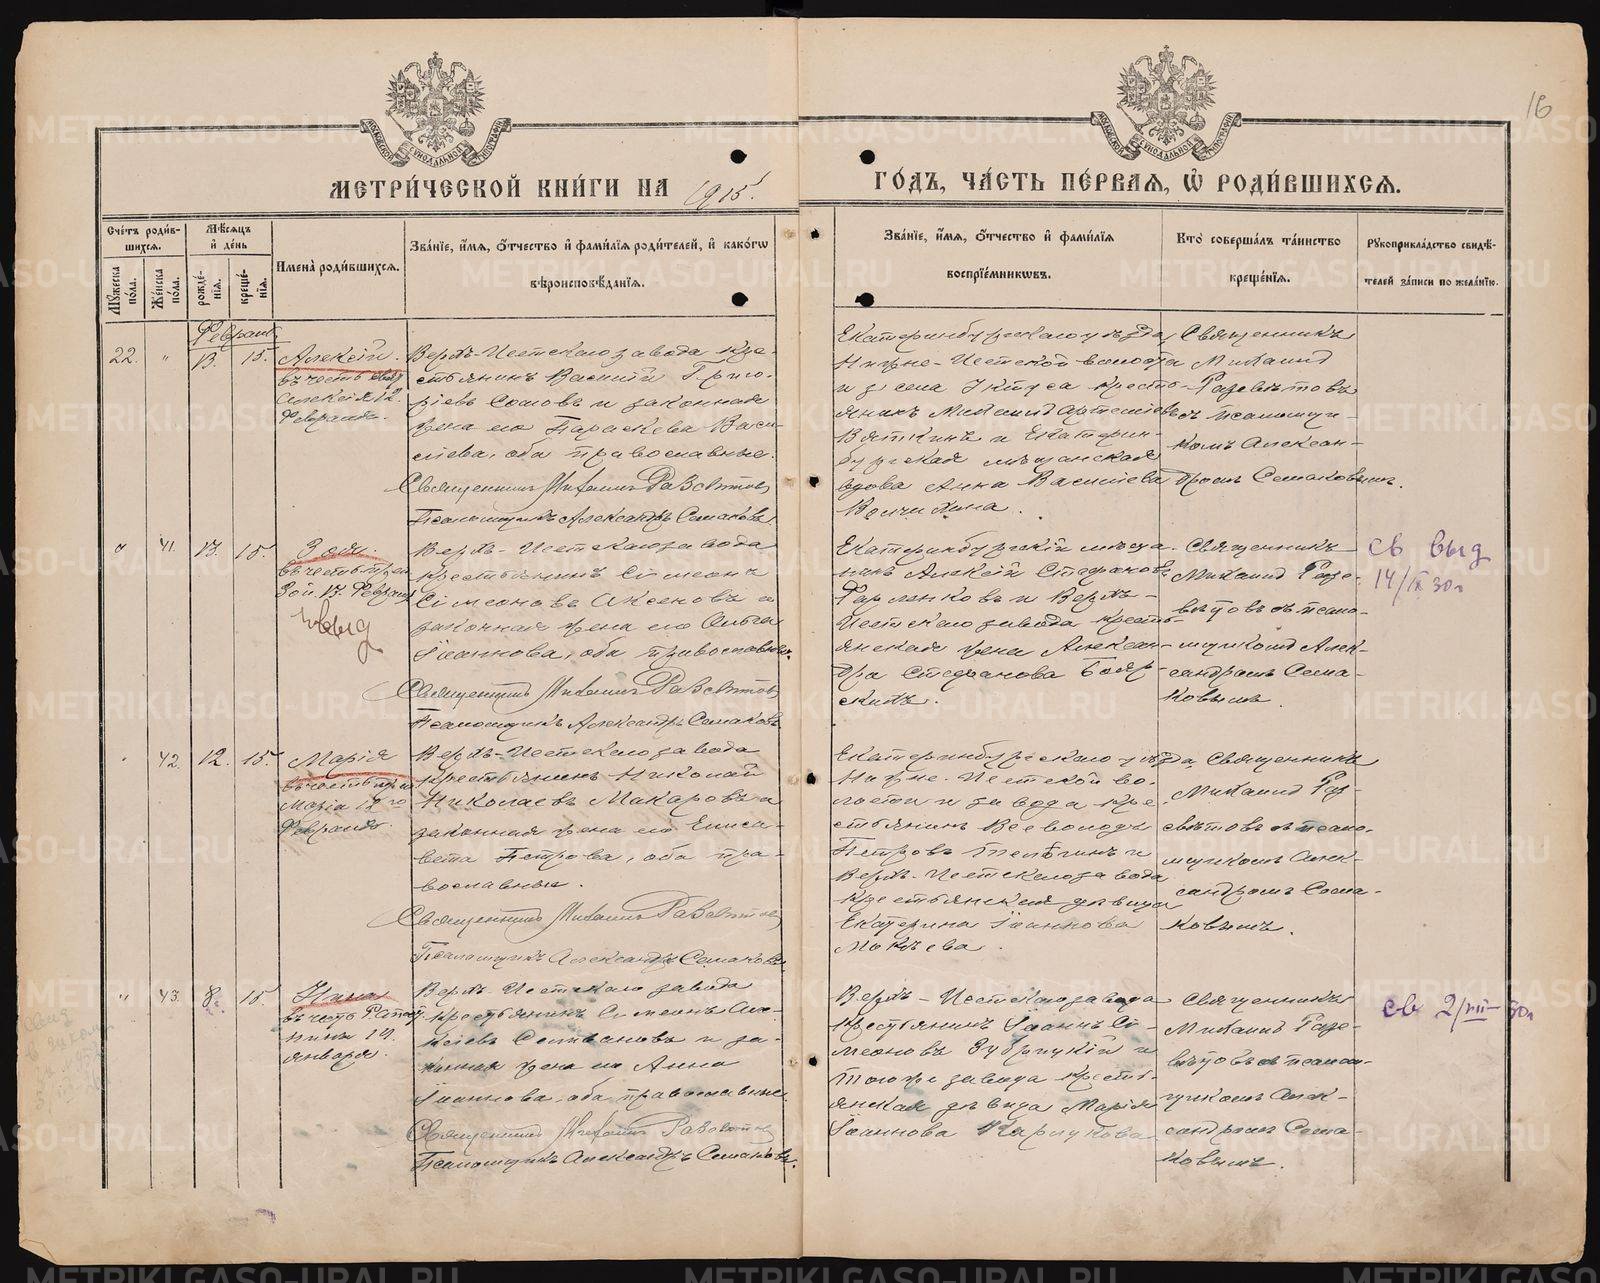 16
МЕТРИ́ЧЕСКОЙ КНИ́ГИ НА 1915
ГО́ДЪ, ЧА́СТЬ ПЕ́РВАЯ, Ѡ҆ РОДИ́ВШИХСЯ.
Сче́тъ роди́вшихся.
Му́жеска по́ла.
Же́нска по́ла.
Мѣ́сяцъ и де́нь
рожде́нія.
креще́нія.
Имена̀ роди́вшихся.
Зва́ніе, и́мя, о́тчество и фами́лія роди́телей, и како́гѡ
вѣроисповѣ́данія.
Зва́ніе, и́мя, о́тчество и фами́лія
воспріе́мниковъ.
Кто̀ соверша́лъ та́инство
креще́нія.
Рукоприкла́дство свидѣ́телей за́писи по жела́нію.
Февраль
22.
"
13.
15.
Алексій.
въ честь
Алексія 12
Февраля.
Верхъ-Исетскаго завода кре-
стьянинъ Василій Григо-
ріевъ Сомовъ и законная
жена его Параскева Васи-
лiева, оба православные.
Священникъ Михаилъ Разсвѣтовъ
Псаломщикъ Александръ Семаковъ.
Екатеринбургскаго уѣзда
Нижне-Исетской волости
и села кресть-
янинъ Михаилъ Артеміевъ
Вяткинъ и Екатерин-
бургская мѣщанская
вдова Анна Василіева
Священникъ
Михаилъ
Разсвѣтовъ
съ псаломщи-
комъ Алексан-
дромъ Семаковымъ.
"
41.
13.
15.
Зоя.
въ честь
Зои 13 Февраля
выд
Верхъ-Исетскаго завода
крестьянинъ Сімеонъ
Сімеоновъ Аксеновъ и
законная жена его Ольга
Іоаннова, оба православные.
Священникъ Михаилъ Разсвѣтовъ
Псаломщикъ Александръ Семаковъ
Екатеринбургскій мѣща-
нинъ Алексій Стефановъ
и Верхъ-
Исетскаго завода кресть-
янская жена Алексан-
дра Стефанова Бояр-
скихъ.
Священникъ
Михаилъ Разс-
вѣтовъ съ псало-
мщикомъ Алек-
сандромъ Сема-
ковымъ.
св выд
14/IX 30г
"
42.
12.
15.
Марія
въ честь
Маріи 12го
Февраля.
Верхъ-Исетскаго завода
крестьянинъ Николай
Николаевъ Макаровъ и
законная жена его Елиса-
вета Петрова, оба пра-
вославные.
Священникъ Михаилъ Разсвѣтовъ
Псаломщикъ Александръ Семаковъ.
Екатеринбургскаго уѣзда
Нижне-Исетской во-
лости и завода кре-
стьянинъ Всеволодъ
Петровъ Телегинъ и
Верхъ-Исетскаго завода
крестьянская дѣвица
Екатерина Іоаннова
Священникъ
Михаилъ Раз-
свѣтовъ съ псало-
мщикомъ Алек-
сандромъ Сема-
ковымъ.
"
43.
8.
15.
Нина
въ честь
Нины 14
января.
Верхъ-Исетскаго завода
крестьянинъ Сімеонъ
Селивановъ и за-
конная жена его Анна
Іоаннова, оба православные.
Священникъ Михаилъ Разсвѣтовъ
Псаломщикъ Александръ Семаковъ.
Верхъ-Исетскаго завода
крестьянинъ Іоаннъ Сі-
меоновъ Зубрицкій и
того же завода кресть-
янская дѣвица Марія
Іоаннова
Священникъ
Михаилъ Разс-
вѣтовъ съ псалом-
щикомъ Алек-
сандромъ Сема-
ковымъ.
св 2/VII-30г
METRIKI.GASO-URAL.RU